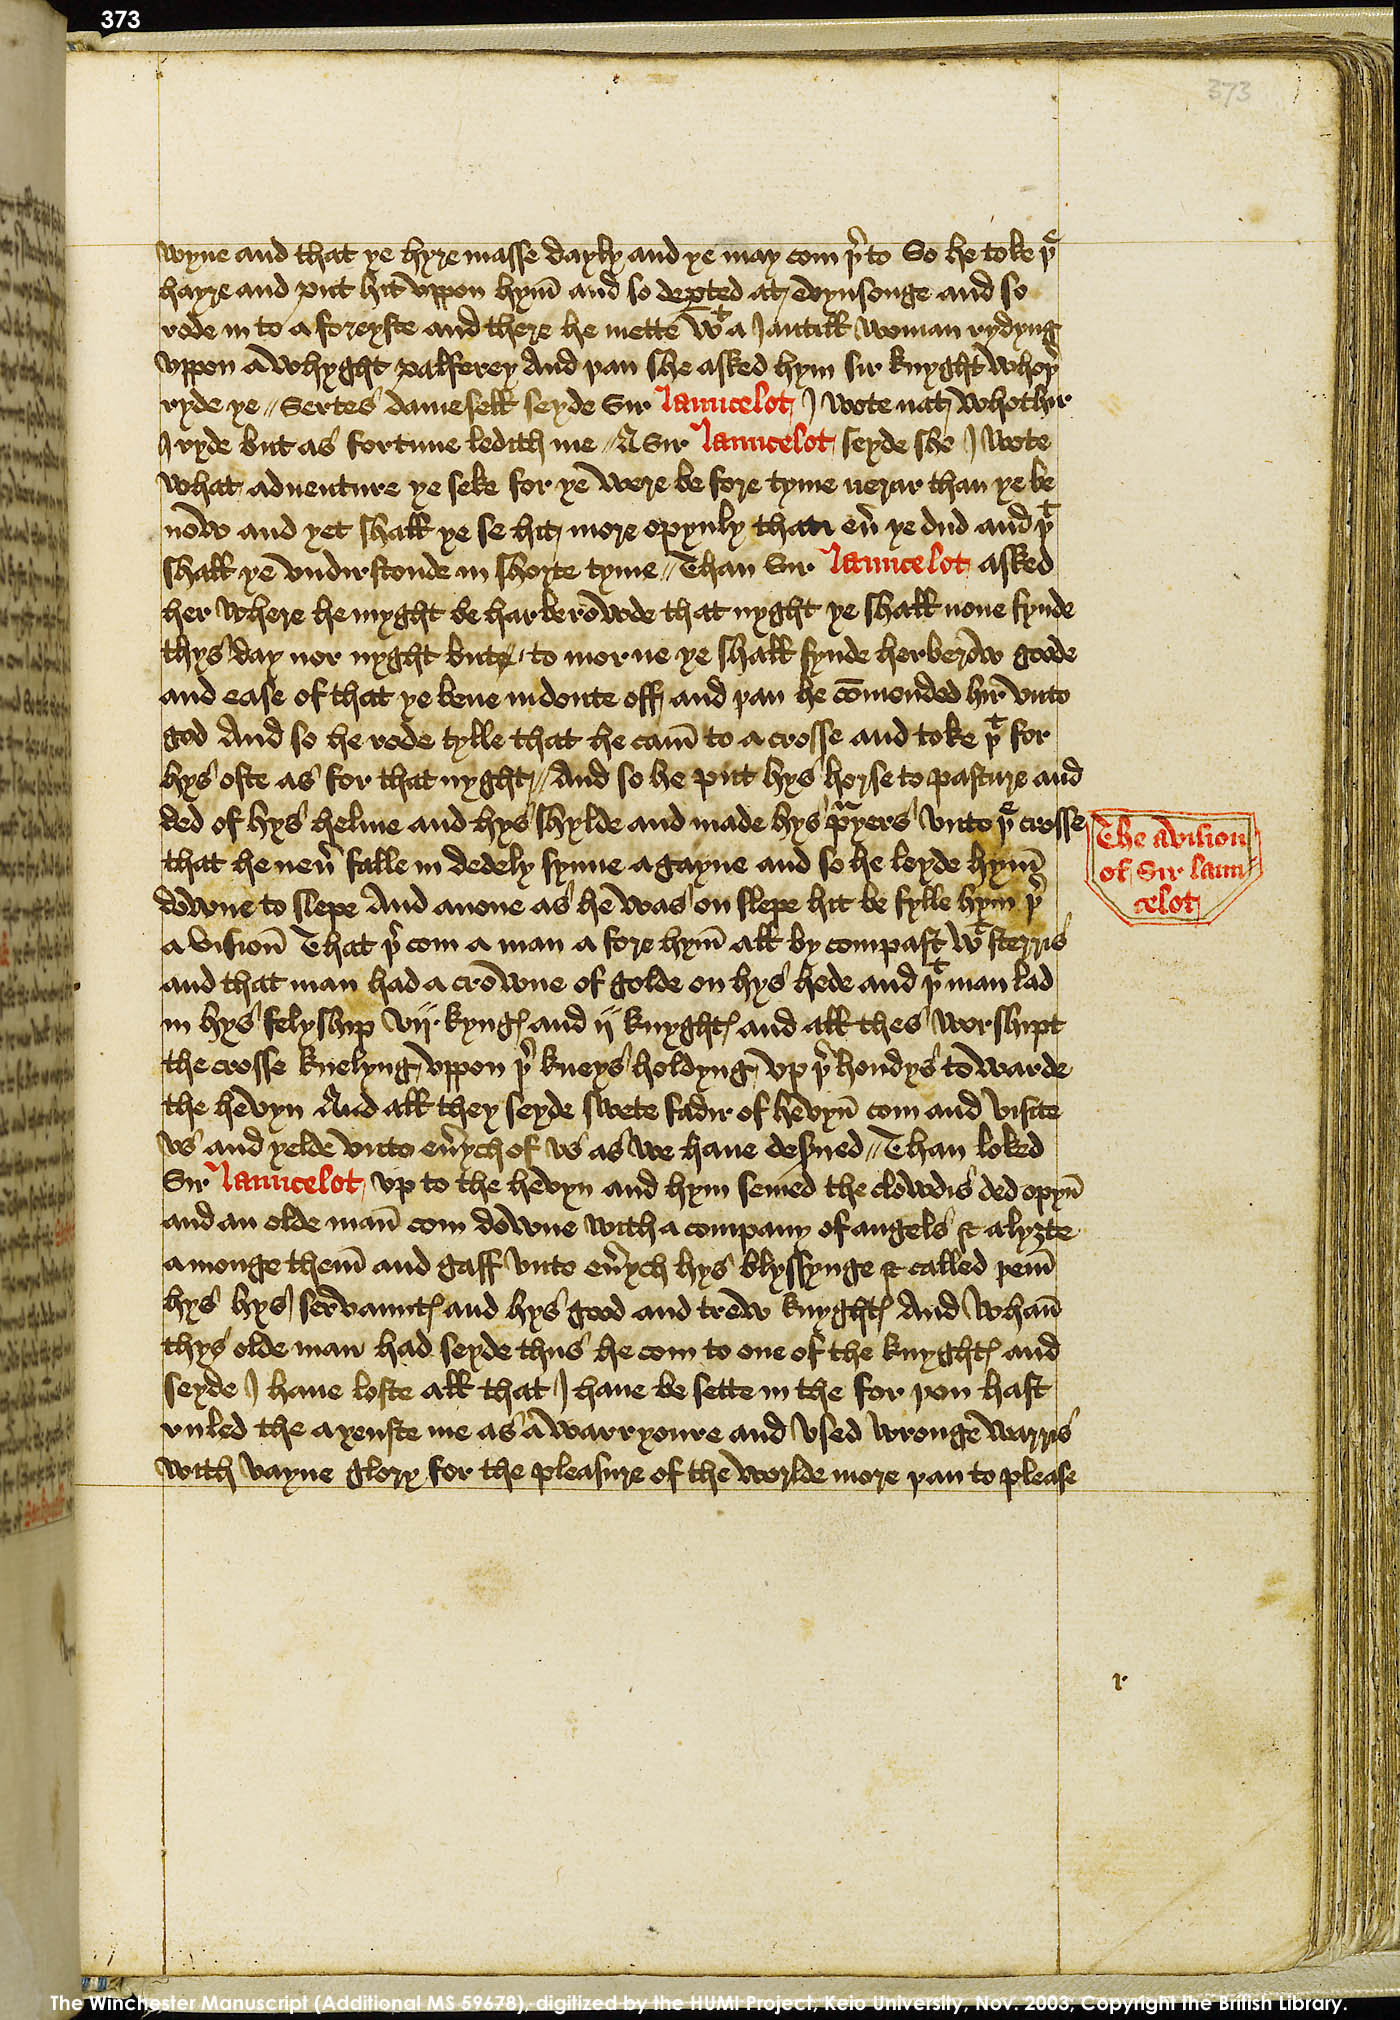 373
373
wyne and that ye hyre masse dayly and ye may com þᵉto So he toke þᵉ
hayre and put hit vppon hym̄ and so deꝑted at evynsonge and so
rode in to a foreyste and there he mette wᵗ a Jantill woman rydyng
vppon a whyght palferey And þan she asked hym sir knyght whoþᵉ
ryde ye // Sertes damesell seyde Sir launcelot I wote nat whothir
I ryde but as fortune ledith me // A Sir launcelot seyde she I wote
what adventure ye seke for ye were be fore tyme nerar than ye be
now and yet shall ye se hit more opynly than eu̾ ye dud and þᵗ
shall ye vndirstonde in shorte tyme // Than Sir launcelot asked
her where he myght be harberowde that nyght ye shall none fynde
thys day nor nyght but to morne ye shall fynde herberow goode
and ease of that ye bene in doute off and þan he cōmended hir vnto
god And so he rode tylle that he cam̄ to a crosse and toke þᵗ for
hys oste as for that nyght // And so he put hys horse to pasture and
ded of hys helme and hys shylde and made hys pᵃyers vnto þᵉ crosse
that he neu̾ falle in dedely synne agayne and so he leyde hym̄
downe to slepe And anone as he was on slepe hit be fylle hym þᵉ
a vision̄ That þᵉ com a man a fore hym̄ all by compast wᵗ sterris
and that man had a crowne of golde on hys hede and þᵗ man lad
in hys felyship vij kyngꝭ and ij knyghtꝭ and all thes worshipt
the crosse knelyng vppon þᵉ kneys holdyng vp þᵉ hondys towarde
the hevyn And all they seyde swete fadir of hevyn̄ com and visite
vs and yelde vnto eu̾ych of vs as we haue deserued // Than loked
Sir launcelot vp to the hevyn and hym semed the clowdis ded opyn̄
and an olde man̄ com downe with a company of angels & alyzte
amonge them̄ and gaff vnto eu̾ych hys blyssynge & called þem̄
hys hys servauntꝭ and hys good and trew knyghtꝭ And whan̄
thys olde man had seyde thus he com to one of the knyghtꝭ and
seyde I haue loste all that I haue be sette in the for þou hast
ruled the ayenste me as a warryoure and vsed wronge warris
with vayne glory for the pleasure of the worlde more þan to please
The avision
of Sir laun
celot
The Winchester Manuscript (Additional MS 59678), digitized by the HUMI Project, Keio University, Nov. 2003; Copyright the British Library.